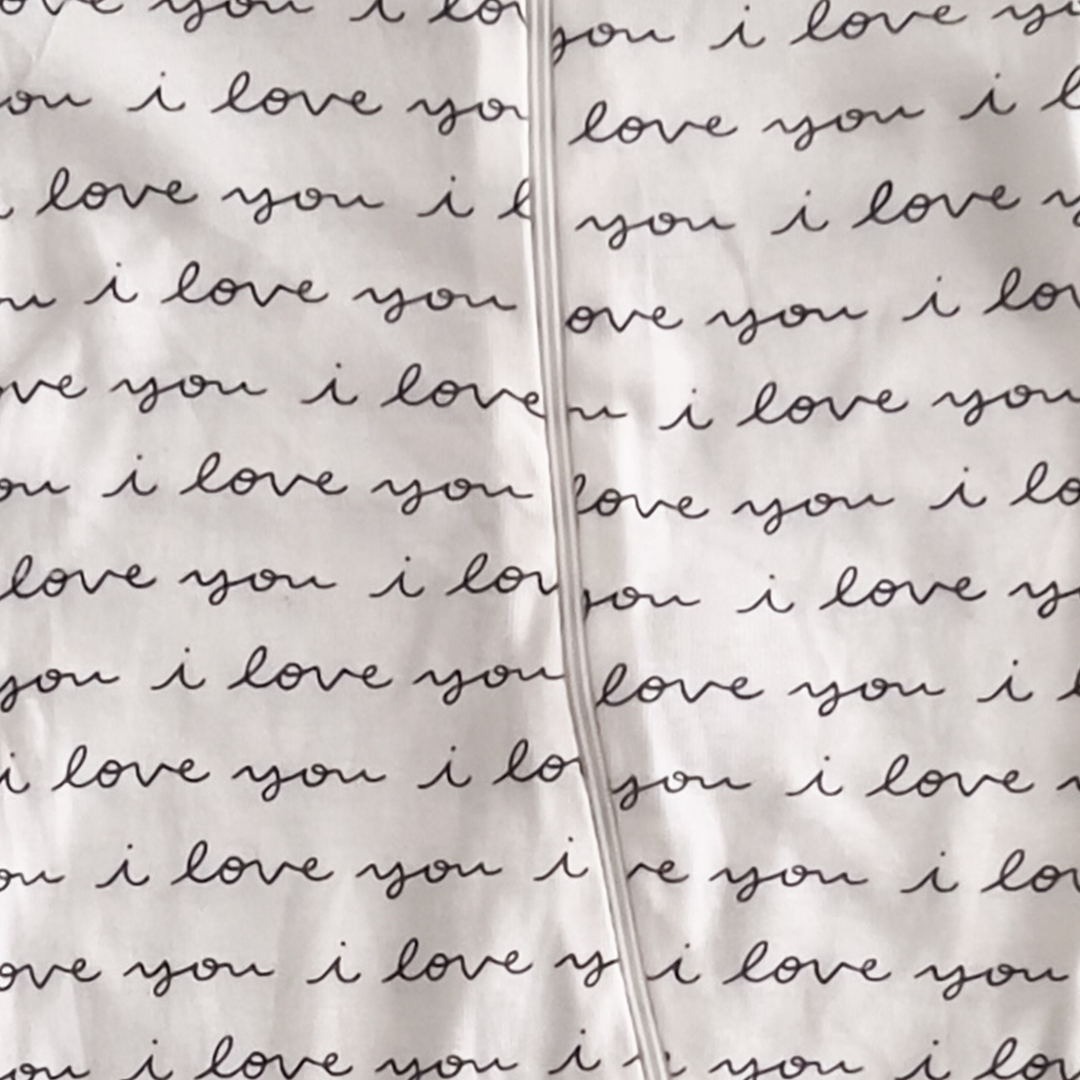 you i lo you i love
i love yo love you i
love you i you i love
i love you ove you i lo
ve you i love u i love you
ou i love you love you i lo
love you i lov you i love y
you i love you love you i
i love you i lo you i love
ou i love you i ve you i lov
ove you i love y i love you
ou i love you i you i lov